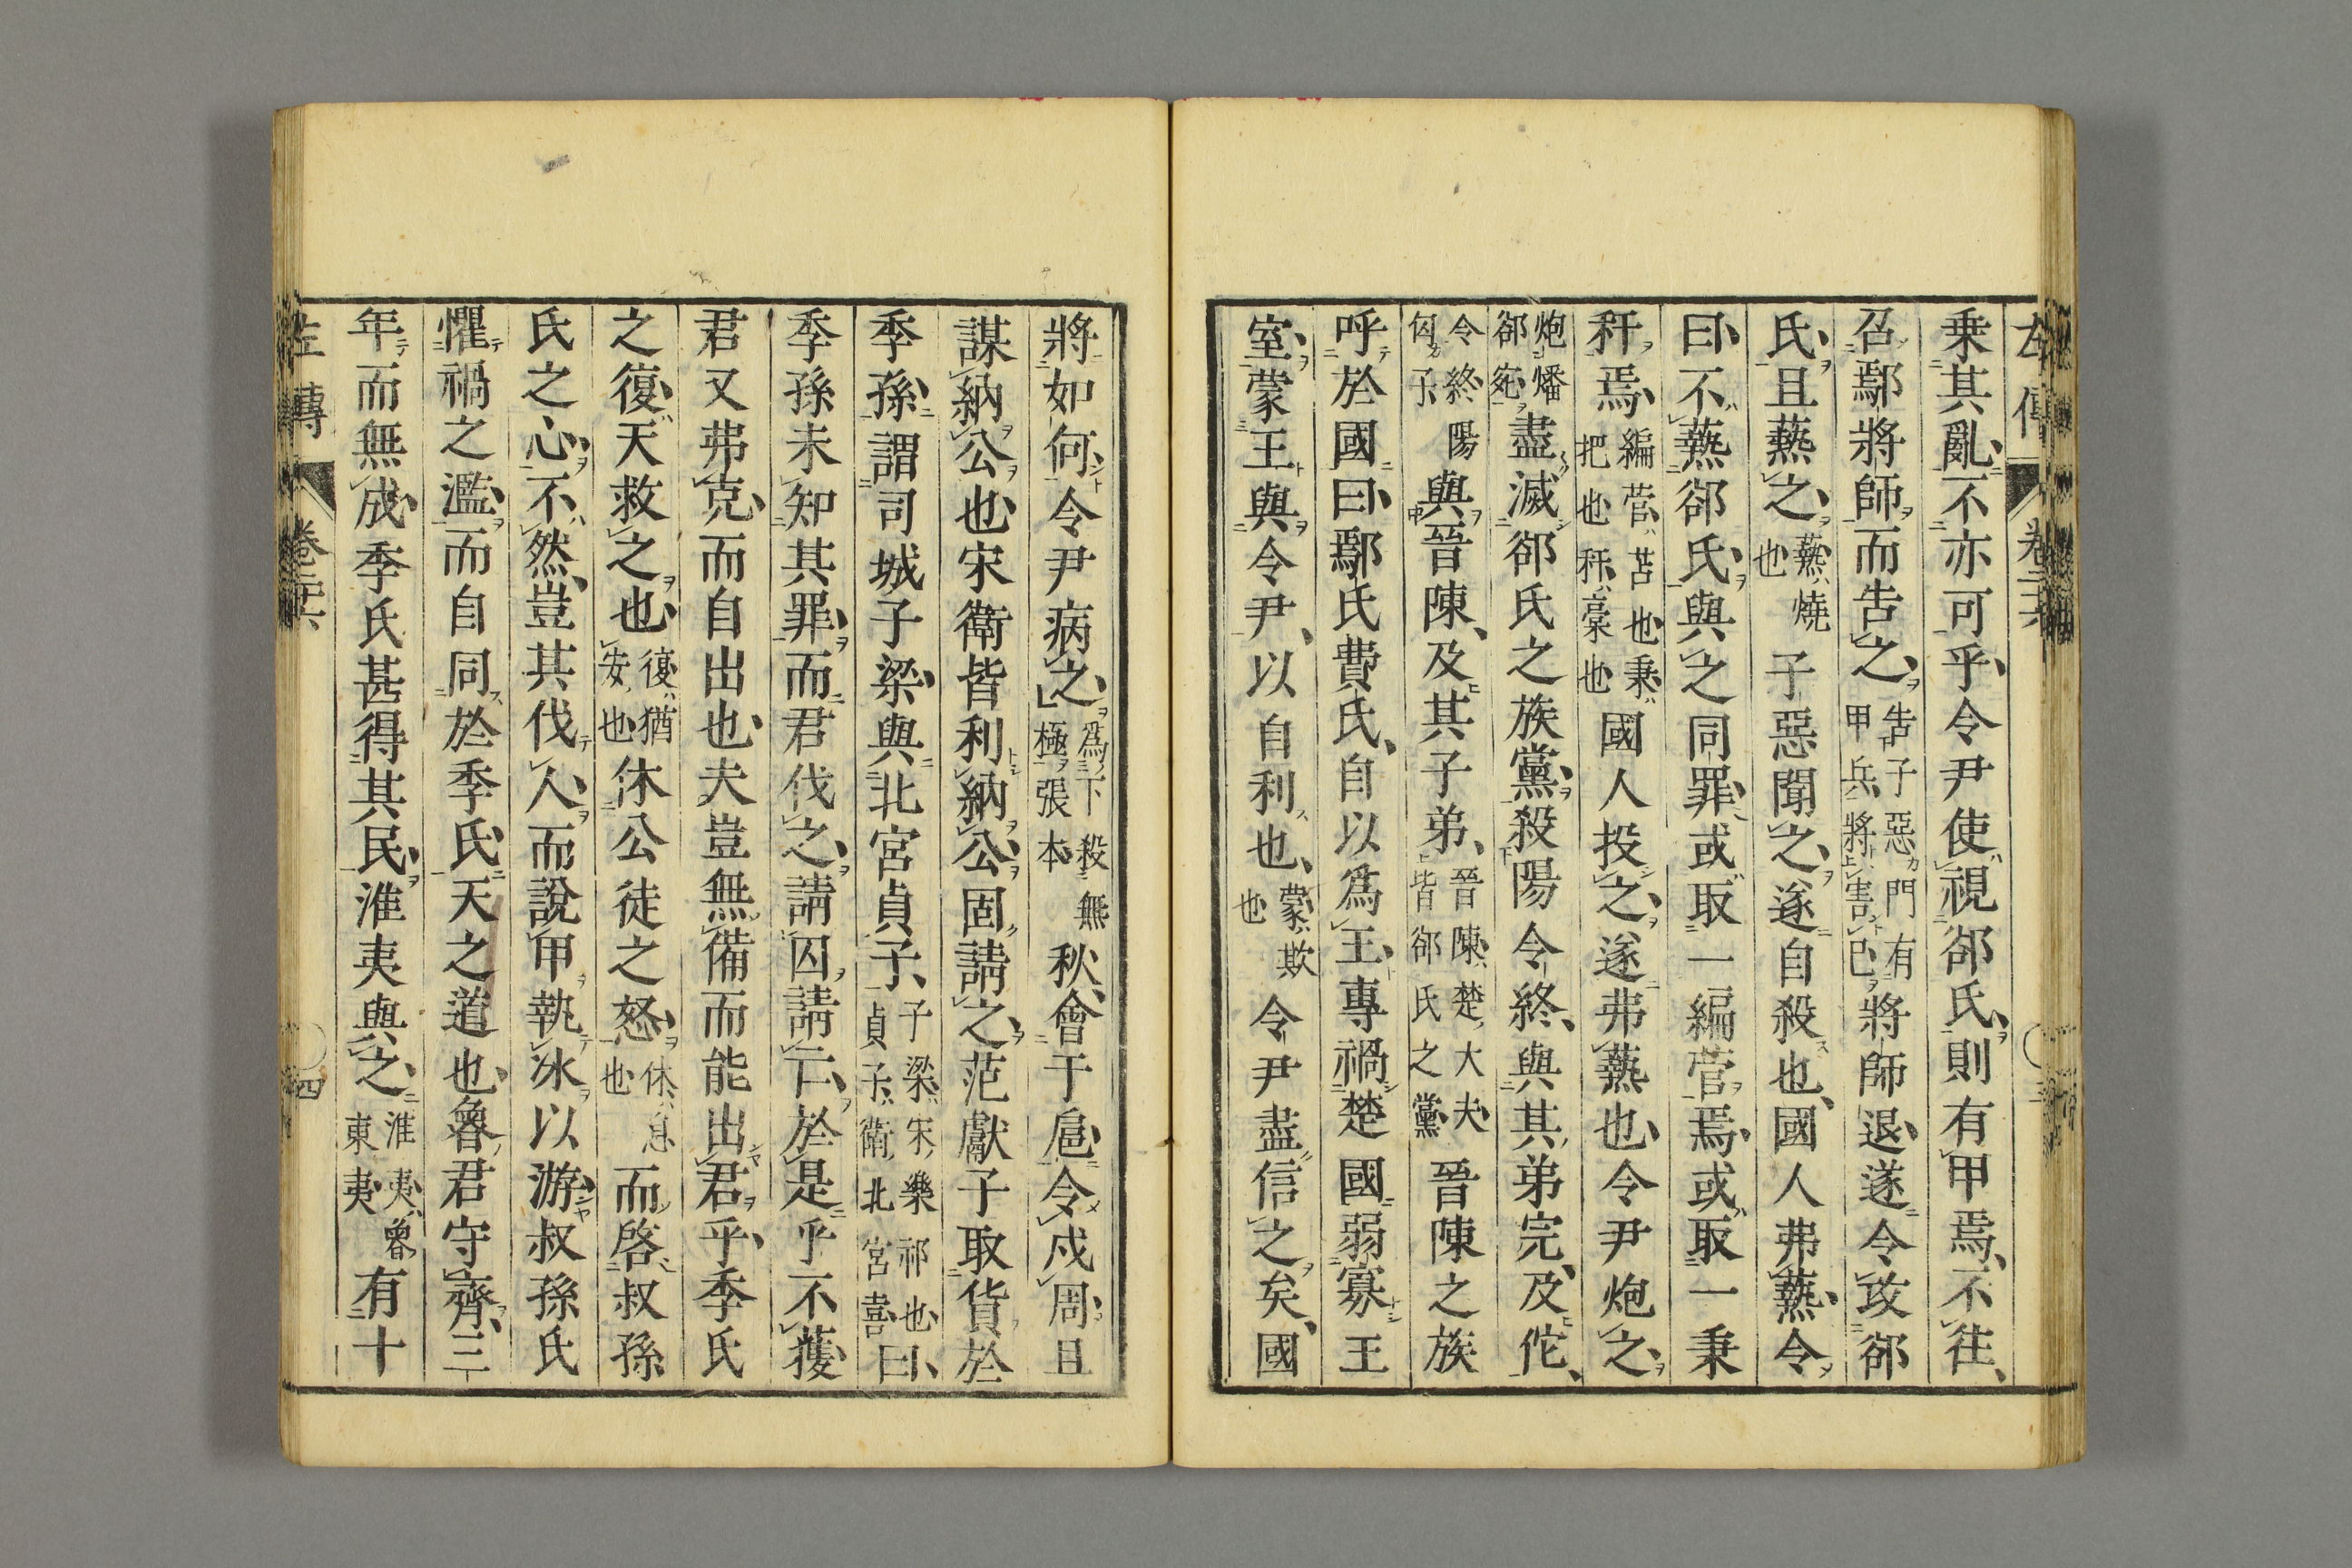 左傳 卷二十六
乗其亂不亦可乎令尹使視郤氏則有甲焉不往
召鄢將師而告之告子惡門有甲兵將害己將師退遂令攻郤
氏且爇之爇燒也子惡聞之遂自殺也國人弗爇令
曰不爇郤氏與之同罪或取一編菅焉或取一秉
秆焉編菅苫也秉把也秆稾也國人投之遂弗爇也令尹炮之
炮燔郤宛盡滅郤氏之族黨殺陽令終與其弟完及佗
令終陽匄子與晉陳及其子弟晉陳楚大夫皆郤氏之黨晉陳之族
呼於國曰鄢氏費氏自以爲王專禍楚國弱寡王
室蒙王與令尹以自利也蒙欺也令尹盡信之矣國
將如何令尹病之爲下殺無極張本秋會于扈令戍周且
謀納公也宋衛皆利納公固請之范獻子取貨於
季孫謂司城子梁與北宮貞子子梁宋樂祁也貞子衛北宮喜曰
季孫未知其罪而君伐之請囚請亡於是乎不獲
君又弗克而自出也夫豈無備而能出君乎季氏
之復天救之也復猶安也休公徒之怒休息也而啓叔孫
氏之心不然豈其伐人而說甲執冰以游叔孫氏
懼禍之濫而自同於季氏天之道也魯君守齊三
年而無成季氏甚得其民淮夷與之淮夷魯東夷有十
左傳 卷二十六 四